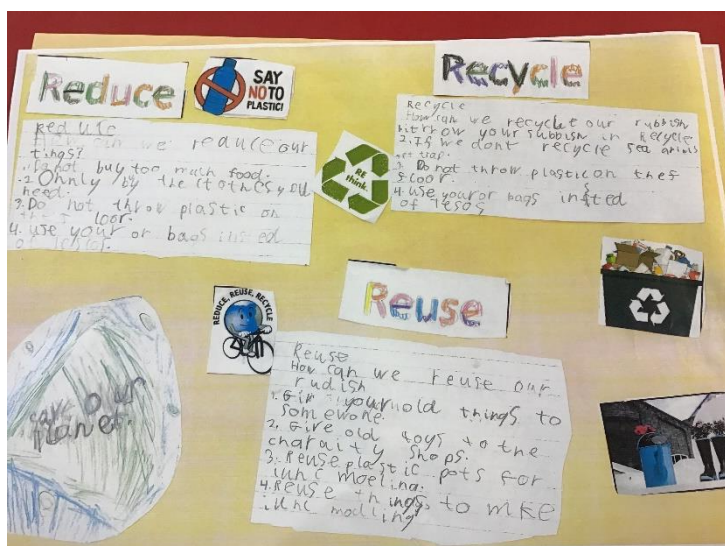 Reduce
SAY
NO TO
PLASTIC!
reduic
How can we reduce our
tings?
1. Do not buy too much food.
2. Ohnly by the you
need.
3. Do not throw plastic on
the loor.
4. use your or bags insted
of Tesos.
Recycle
Recycle
How can we recyclet our rubbish
your subbish in Recycle
2. If we dont recycle sea
get trap.
3. Do not throw plastic on the
floor.
4 use your or bags insted
of Tesos
RE
think.
REDUCE, REUSE, RECYCLE
Reuse
Reuse
How can we reuse our
rudish
1. Giv your old things to
somewone.
2. Give old toys to the
charaity shops.
3. Reuse plastic pots for
iunc moeling.
4. Reuse things to mke
iunc modling
save our
planet.